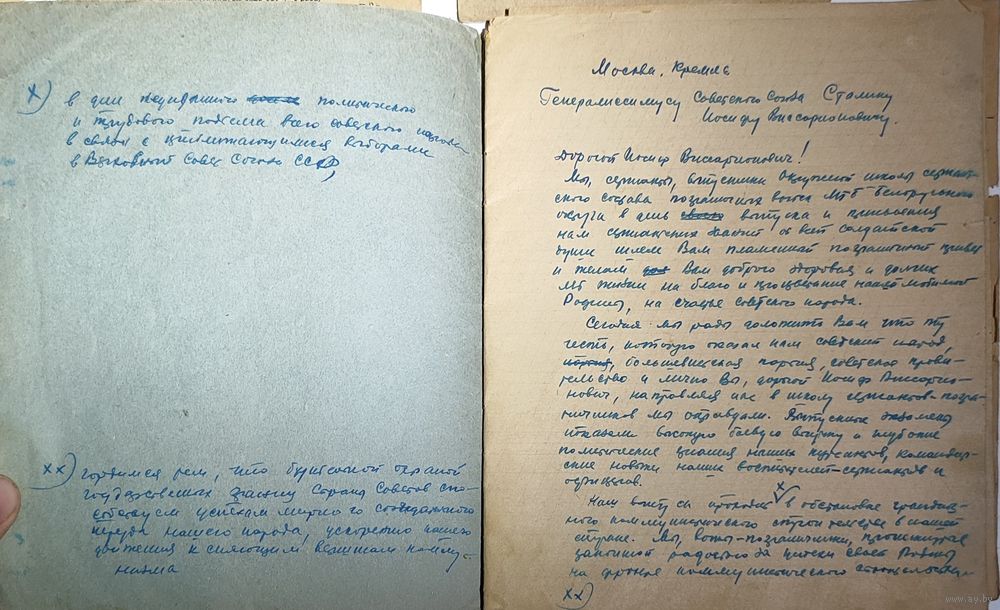 х)
в дни невиданного политического
и трудового подъема всего советского народа
в связи с приближающимися выборами
в Верховный Совет Союза ССР,
хх) гордимся тем, что бдительной охраной
государственных границ Страны Советов спо-
собствуем успехам мирного созидательного
труда нашего народа, ускорению нашего
движения к сияющим вершинам комму-
низма
Москва. Кремль
Генералиссимусу Советского Союза Сталину
Иосифу Виссарионовичу.
Дорогой Иосиф Виссарионович!
Мы, сержанты, выпускники Окружной школы сержант-
ского состава пограничных войск МГБ Белорусского
округа в день выпуска и присвоения
нам сержантских званий от всей солдатской
души шлем Вам пламенный пограничный привет
и желаем Вам доброго здоровья и долгих
лет жизни на благо и процветание нашей любимой
Родины, на счастье советского народа.
Сегодня мы рады доложить Вам что ту
честь, которую оказал нам советский народ,
партия, большевистская партия, советское прави-
тельство и лично Вы, дорогой Иосиф Виссарио-
нович, направляя нас в школу сержантов-погра-
ничников мы оправдали. Выпускные экзамены
показали высокую боевую выучку и глубокие
политические знания наших курсантов, командир-
ские навыки наших воспитателей-сержантов и
офицеров.
Наш выпуск проходит х в обстановке грандиоз-
ного коммунистического строительства в нашей
стране. Мы, воины-пограничники,
законной радостью за успехи своей Родины
на фронте коммунистического строительства
хх)
www.ay.by